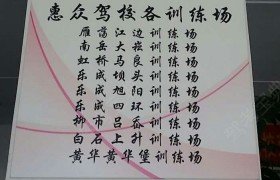 惠众驾校各训练场
雁荡江边训练场
南岳大嵌训练场
虹桥马良训练场
乐成坝头训练场
乐成旭阳训练场
乐成四环训练场
柳市吕岙训练场
白石上升训练场
黄华黄华堡训练场